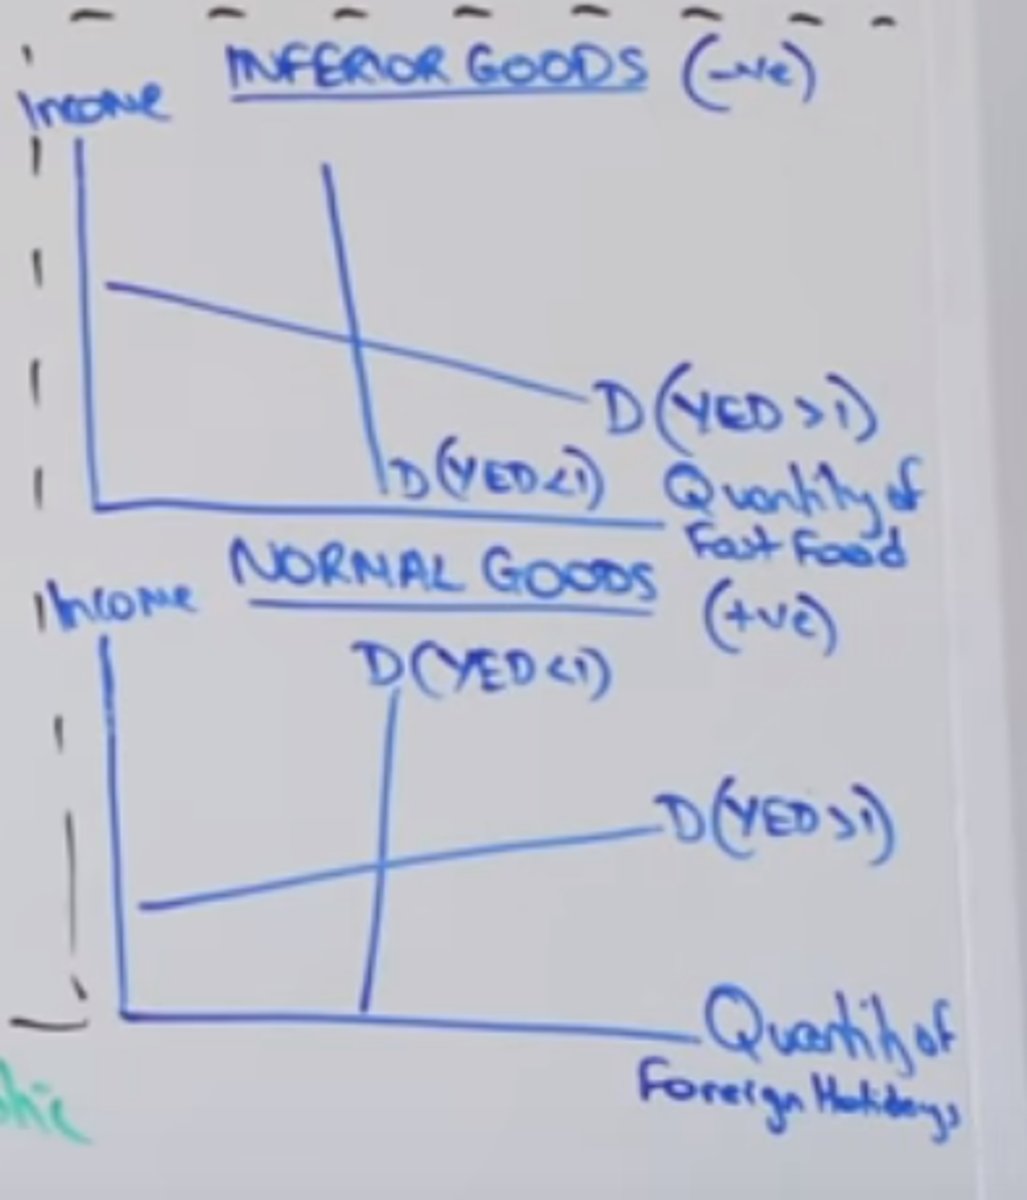 INFERIOR GOODS (-ve)
Income
D(YED>1)
D(YED<1)
Quantity of
Fast Food
NORMAL GOODS
(+ve)
Income
D(YED<1)
D(YED>1)
Quantity of
Foreign Holidays